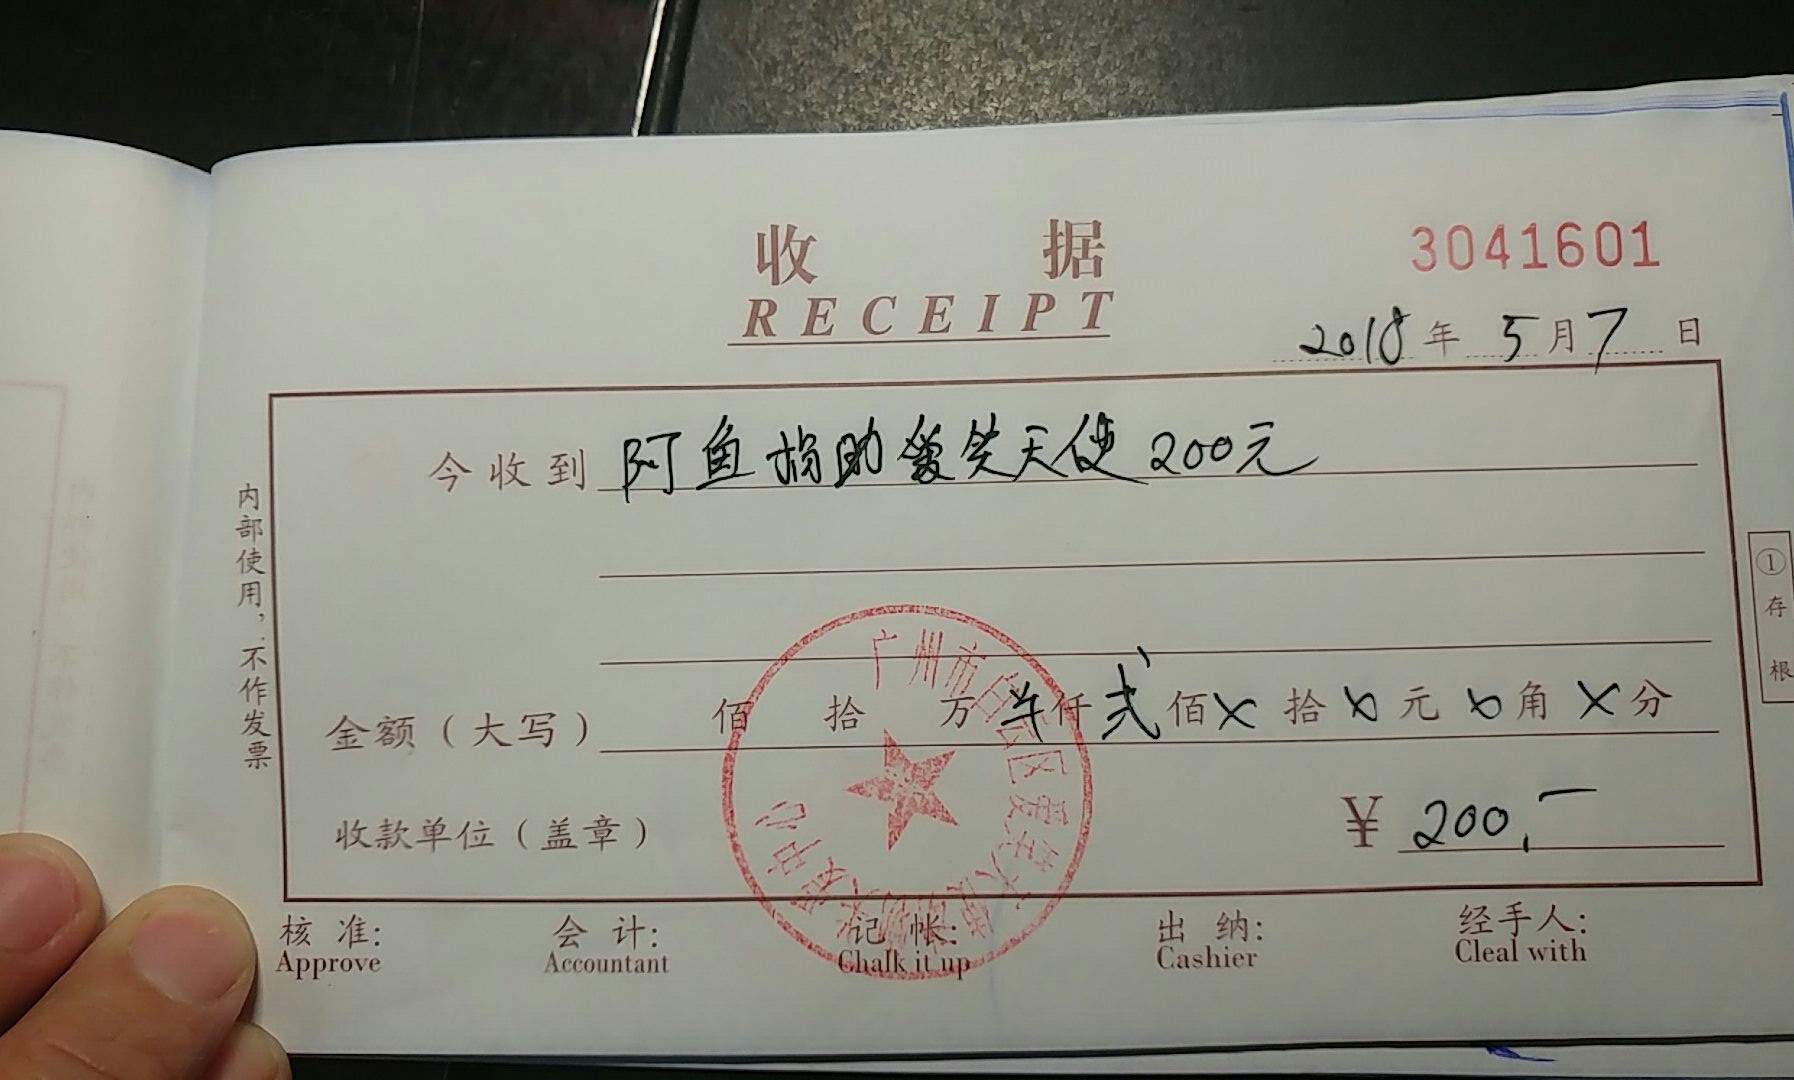 收 据
RECEIPT
3041601
2018 年 5 月 7 日
今收到 阿鱼捐助爱笑天使200元
金额(大写) 佰 拾 万 仟 弍 佰 X 拾 X 元 X 角 X 分
收款单位(盖章) ¥ 200.—
核 准: 会 计: 记 帐: 出 纳: 经手人:
Approve Accountant Chalk it up Cashier Cleal with
内部使用,不作发票
① 存 根
广州市白云区爱笑天使 中心